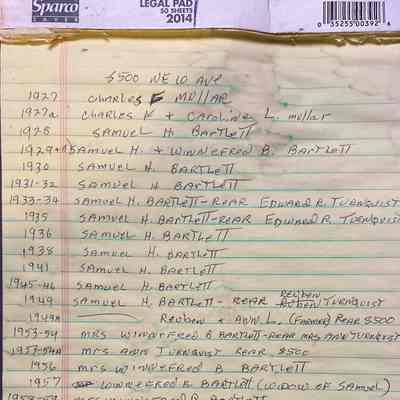 Sparco
SAVER
LEGAL PAD
50 SHEETS
2014
35255 00392 6
8500 NEW AVE
1927 CHARLES F MULLAR
1927a CHARLES F + CAROLINE L. mullar
1928 SAMUEL H BARTLETT
1929 SAMUEL H. + WINNEFRED B. BARTLETT
1930 SAMUEL H. BARTLETT
1931-32 SAMUEL H BARTLETT
1933-34 SAMUEL H. BARTLETT-REAR EDWARD R. TURNQUIST
1935 SAMUEL H. BARTLETT-REAR EDWARD R. TURNQUIST
1936 SAMUEL H. BARTLETT
1938 SAMUEL H. BARTLETT
1941 SAMUEL H. BARTLETT
1945-46 SAMUEL H. BARTLETT
1949 SAMUEL H. BARTLETT - REAR REUBEN TURNQUIST
1949a REUBEN + ANN L. (FARMER) REAR 8500
1953-54 MRS WINNEFRED B BARTLETT-REAR MRS ANN TURNQUIST
1953-54a MRS ANN TURNQUIST REAR 8500
1956 MRS WINNEFRED B BARTLETT
1957 WINNEFRED B BARTLETT (WIDOW OF SAMUEL)
1958-59